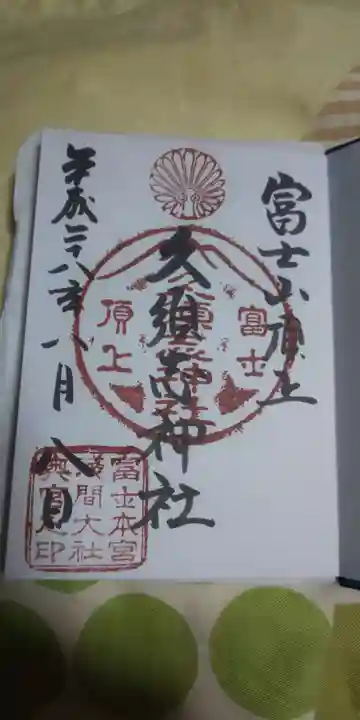 富士山頂上
久須志神社
富士
頂上
平成二十八年八月八日
富士山本宮
浅間大社
奥宮之印